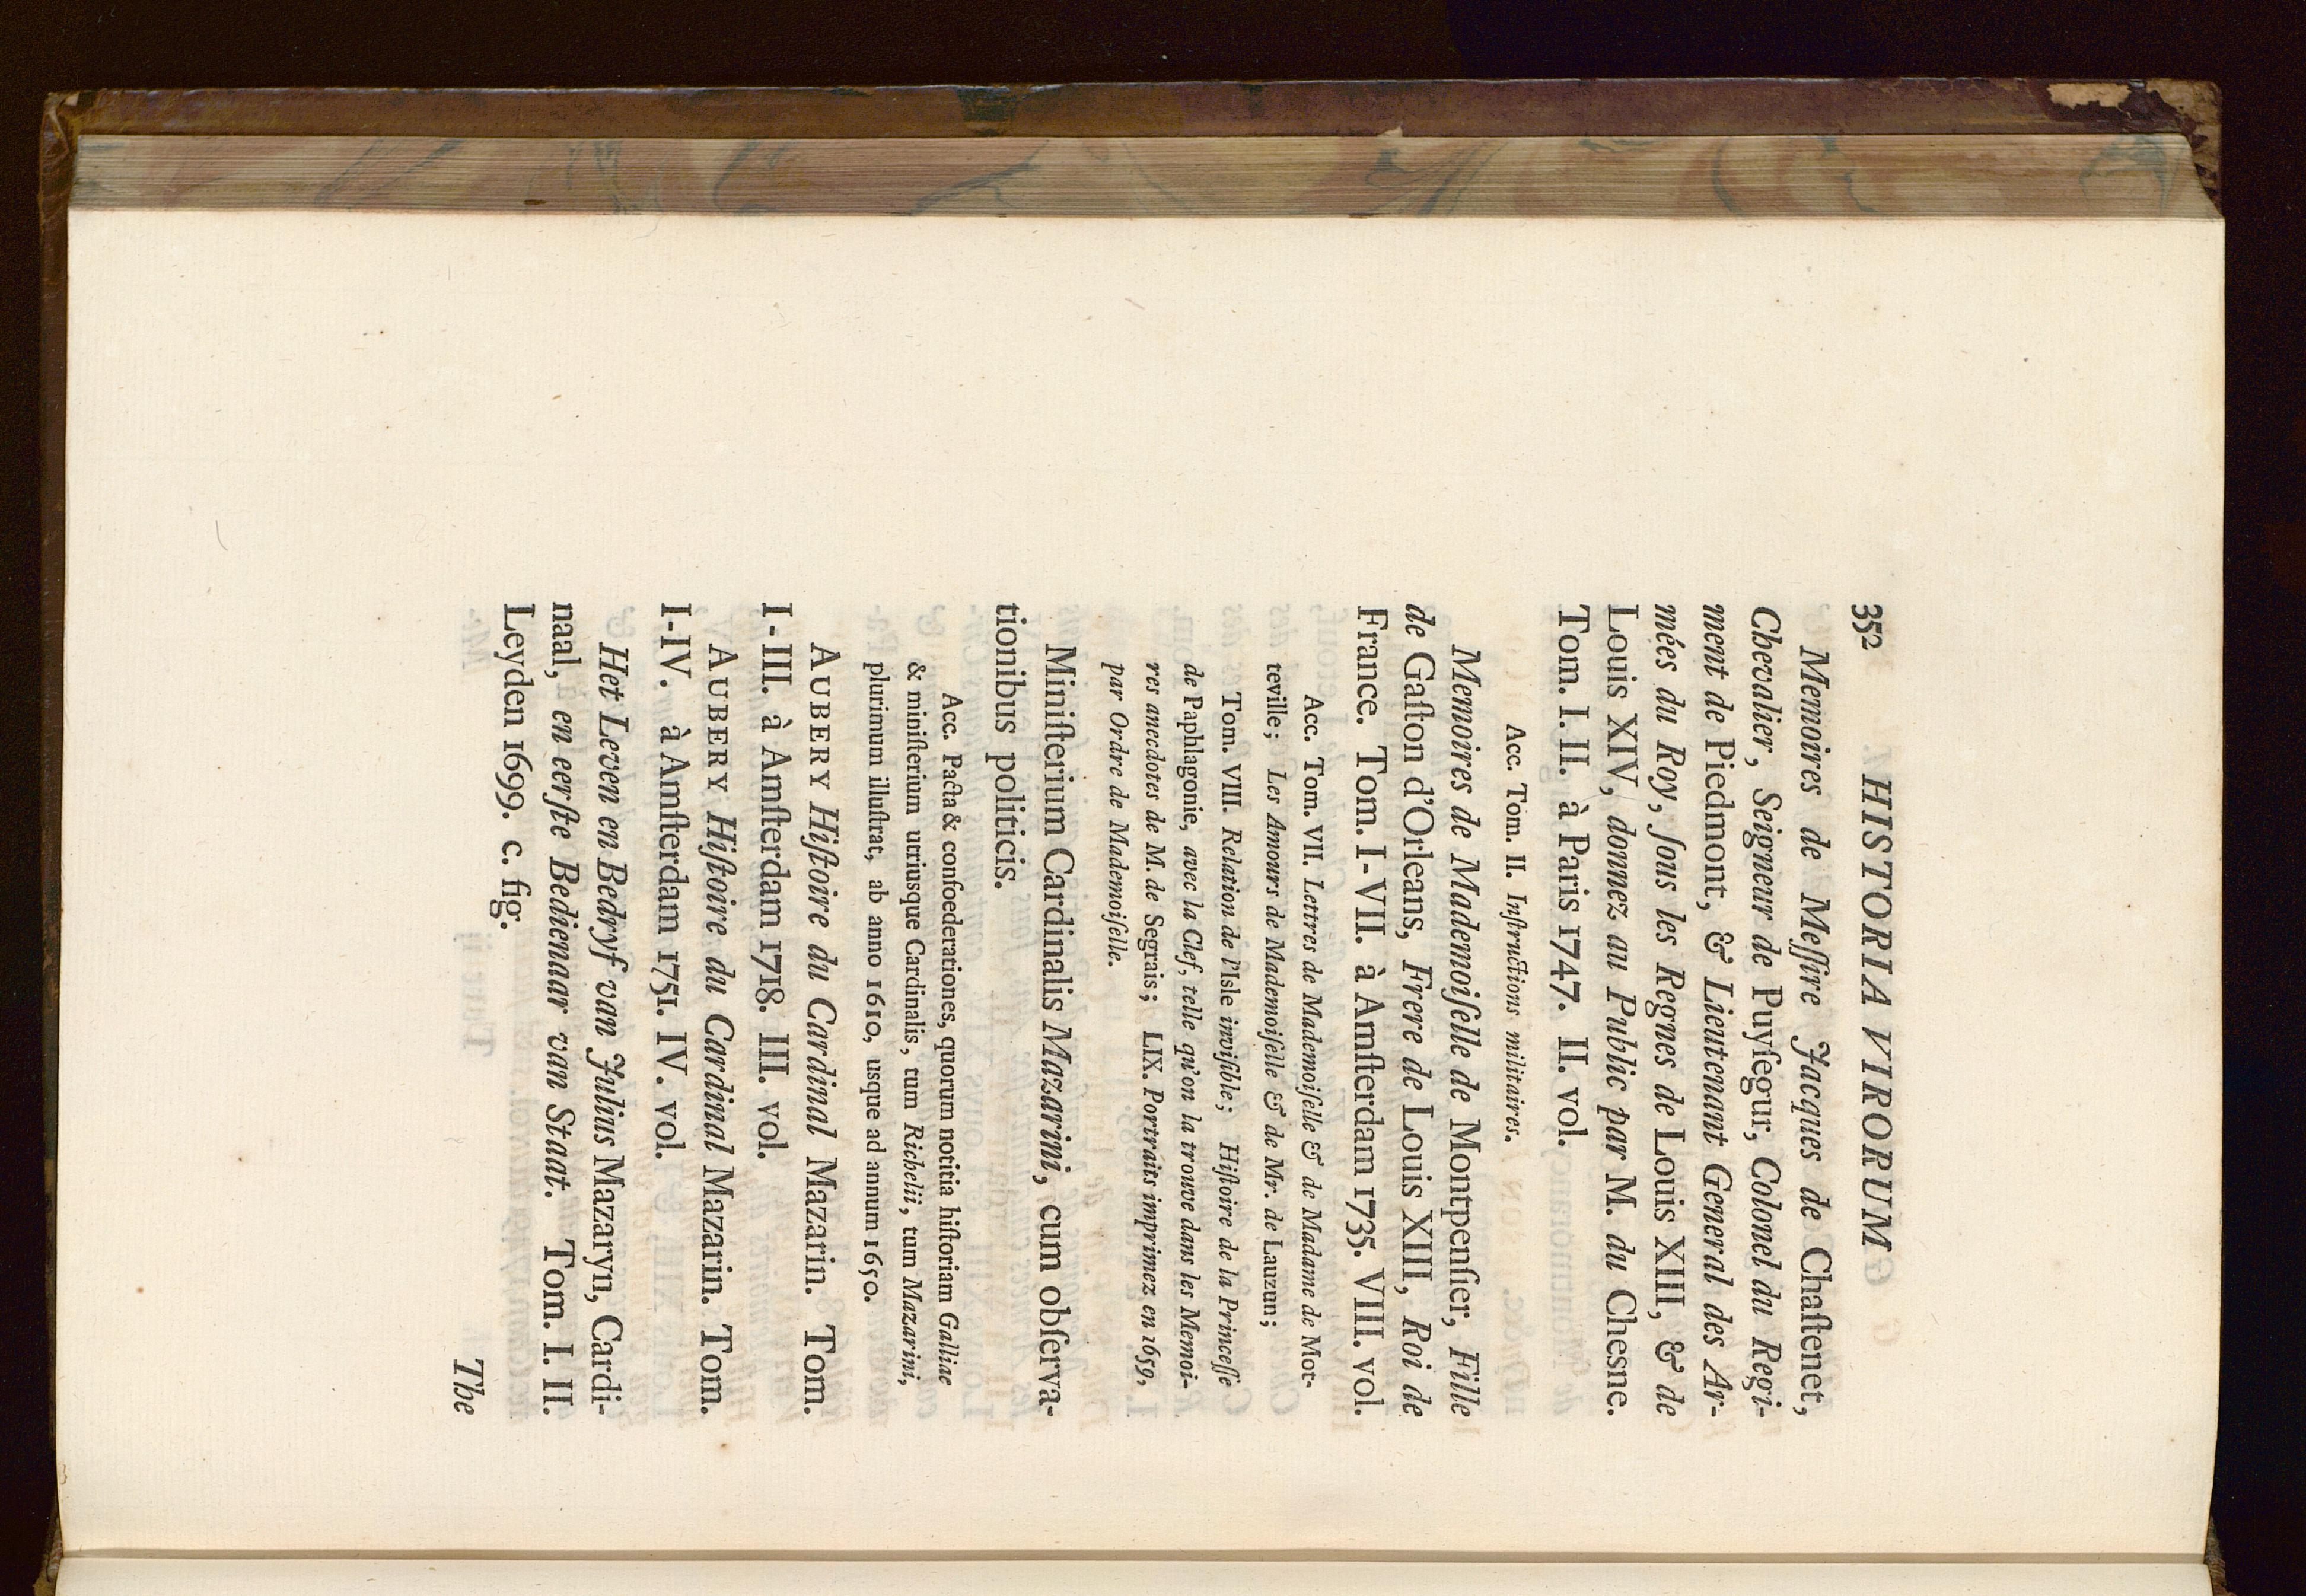 352 HISTORIA VIRORUM
Memoires de Meſſire Jacques de Chaſtenet,
Chevalier, Seigneur de Puyſegur, Colonel du Regi-
ment de Piedmont, & Lieutenant General des Ar-
mées du Roy, ſous les Regnes de Louis XIII, & de
Louis XIV, donnez au Public par M. du Chesne.
Tom. I. II. à Paris 1747. II. vol.
Acc. Tom. II. Inſtructions militaires.
Memoires de Mademoiſelle de Montpenſier, Fille
de Gaſton d'Orleans, Frere de Louis XIII, Roi de
France. Tom. I-VII. à Amſterdam 1735. VIII. vol.
Acc. Tom. VII. Lettres de Mademoiſelle & de Madame de Mot-
teville; Les Amours de Mademoiſelle & de Mr. de Lauzun;
Tom. VIII. Relation de l'Isle inviſible; Hiſtoire de la Princeſſe
de Paphlagonie, avec la Clef, telle qu'on la trouve dans les Memoi-
res anecdotes de M. de Segrais; LIX. Portraits imprimez en 1659,
par Ordre de Mademoiſelle.
Miniſterium Cardinalis Mazarini, cum obſerva-
tionibus politicis.
Acc. Pacta & confoederationes, quorum notitia hiſtoriam Galliae
& miniſterium utriusque Cardinalis, tum Richelii, tum Mazarini,
plurimum illuſtrat, ab anno 1610, usque ad annum 1650.
AUBERY Hiſtoire du Cardinal Mazarin. Tom.
I-III. à Amſterdam 1718. III. vol.
AUBERY Hiſtoire du Cardinal Mazarin. Tom.
I-IV. à Amſterdam 1751. IV. vol.
Het Leven en Bedryf van Julius Mazaryn, Cardi-
naal, en eerſte Bedienaar van Staat. Tom. I. II.
Leyden 1699. c. fig.
The